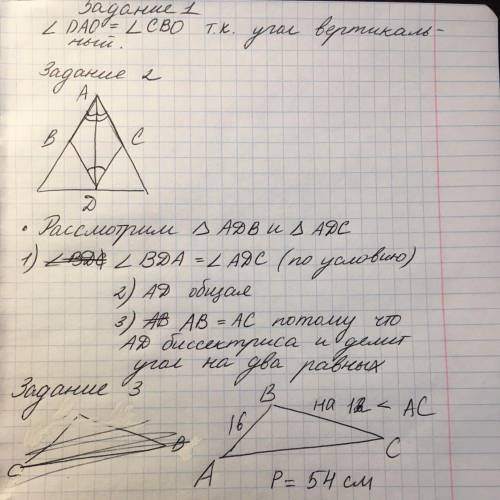 Задание 1
∠ DAO = ∠ CBO т.к. угол вертикаль-
ный.
Задание 2
A
B C
D
• Рассмотрим △ ADB и △ ADC
1) ∠ BDA = ∠ ADC (по условию)
2) AD общая
3) AB = AC потому что
AD биссектриса и делит
угол на два равных
Задание 3
B
на 12 < AC
16
C B
C
A
P = 54 см